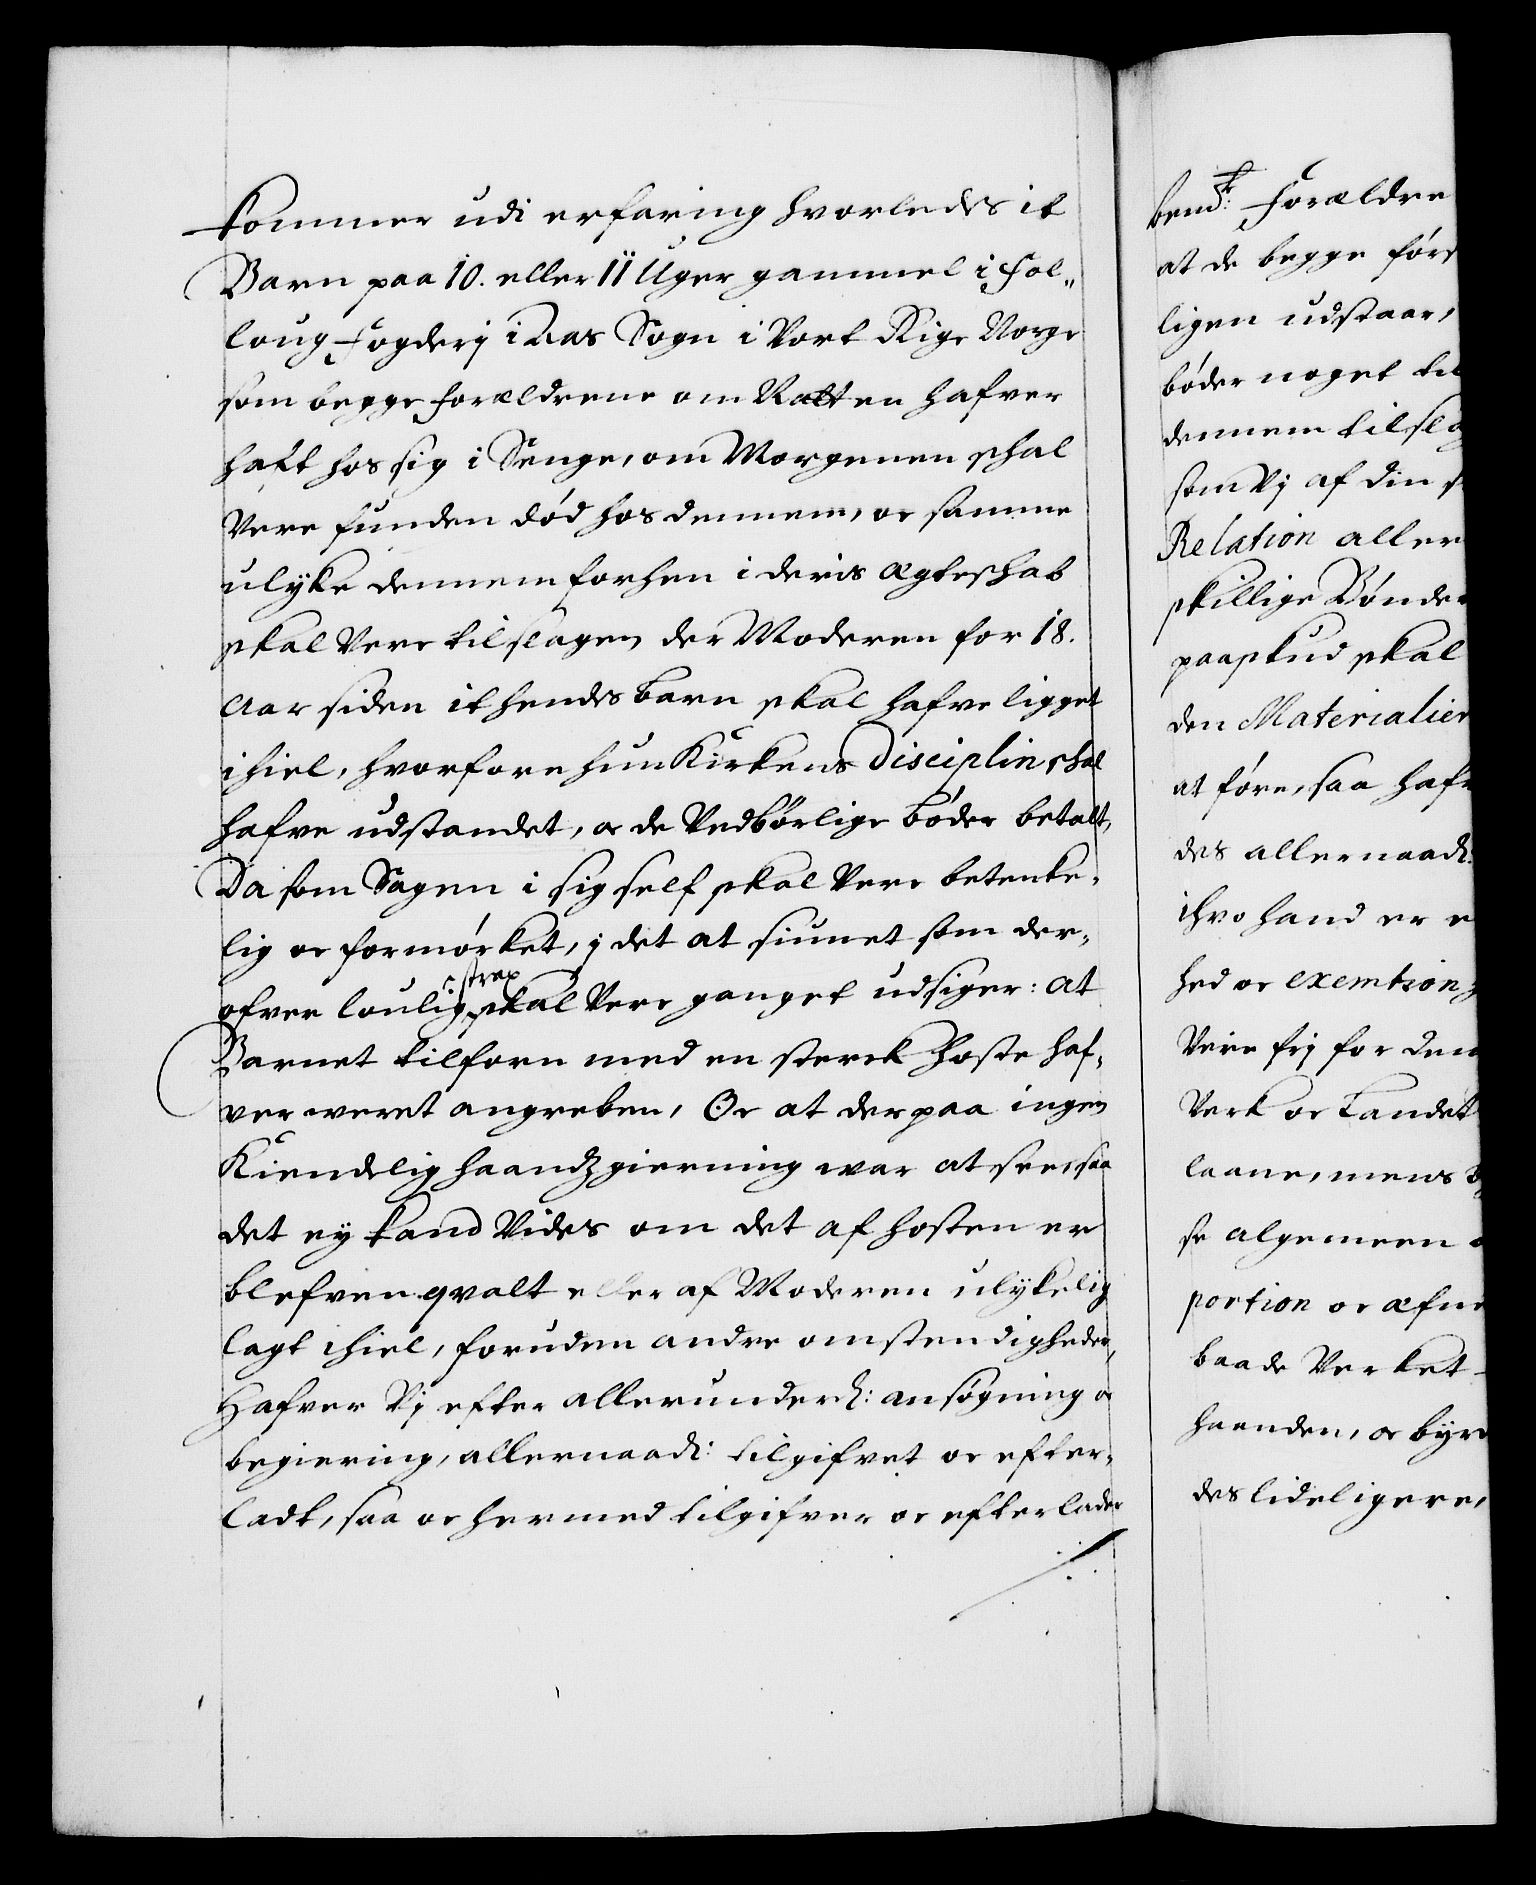 kommer udi erfaring hvorledes it
Barn paa 10. eller 11 Uger gammel i Fol„
loug Fogderj i Aas Sogn i Vort Rige Norge
som begge Forældrene om Natten hafver
haft hos sig i Senge, om Morgenen schal
Vere funden död hos dennem, oc samme
ulyke dennem forhen i deris ægteschab
skal Vere tilslagen, der Moderen for 18.
Aar siden it hendes barn skal hafve ligget
ihiel, hvorfore hun Kirkens Disciplin schal
hafve udstandet, oc de Vedbörlige böder betalt,
Da som Sagen i sig self skal Vere betenke,
lig oc formörket, j det at siunet som der,
ofver loulig strax skal Vere ganget udsiger: At
Barnet tilforn med en sterck hoste haf,
ver weret angreben, Oc at der paa ingen
Kiendelig haandzgierning war at see, saa
det ey kand Vides om det af hosten er
blefven qvalt eller af Moderen ulykelig
lagt ihiel, foruden andre omstendigheder,
Hafver Vj efter allerunderd: ansögning oc
begiering, allernaad: tilgifvet oc efter,
ladt, saa oc hermed tilgifver oc efterlader
bemt: Forældre
at de begge förs
ligen udstaar,
böder noget til
dennem tilsla
som Vj af din
Relation aller
skillige Bönder
paaskud skal
den Materialier
at före, saa hafv
des allernaad:
ihvo hand er
hed oc exemtion
Vere frj for den
Verk oc Landet
laane, mens
se algemeen
portion oc æfne
baade Verket
haanden, oc byr
des lideligere,